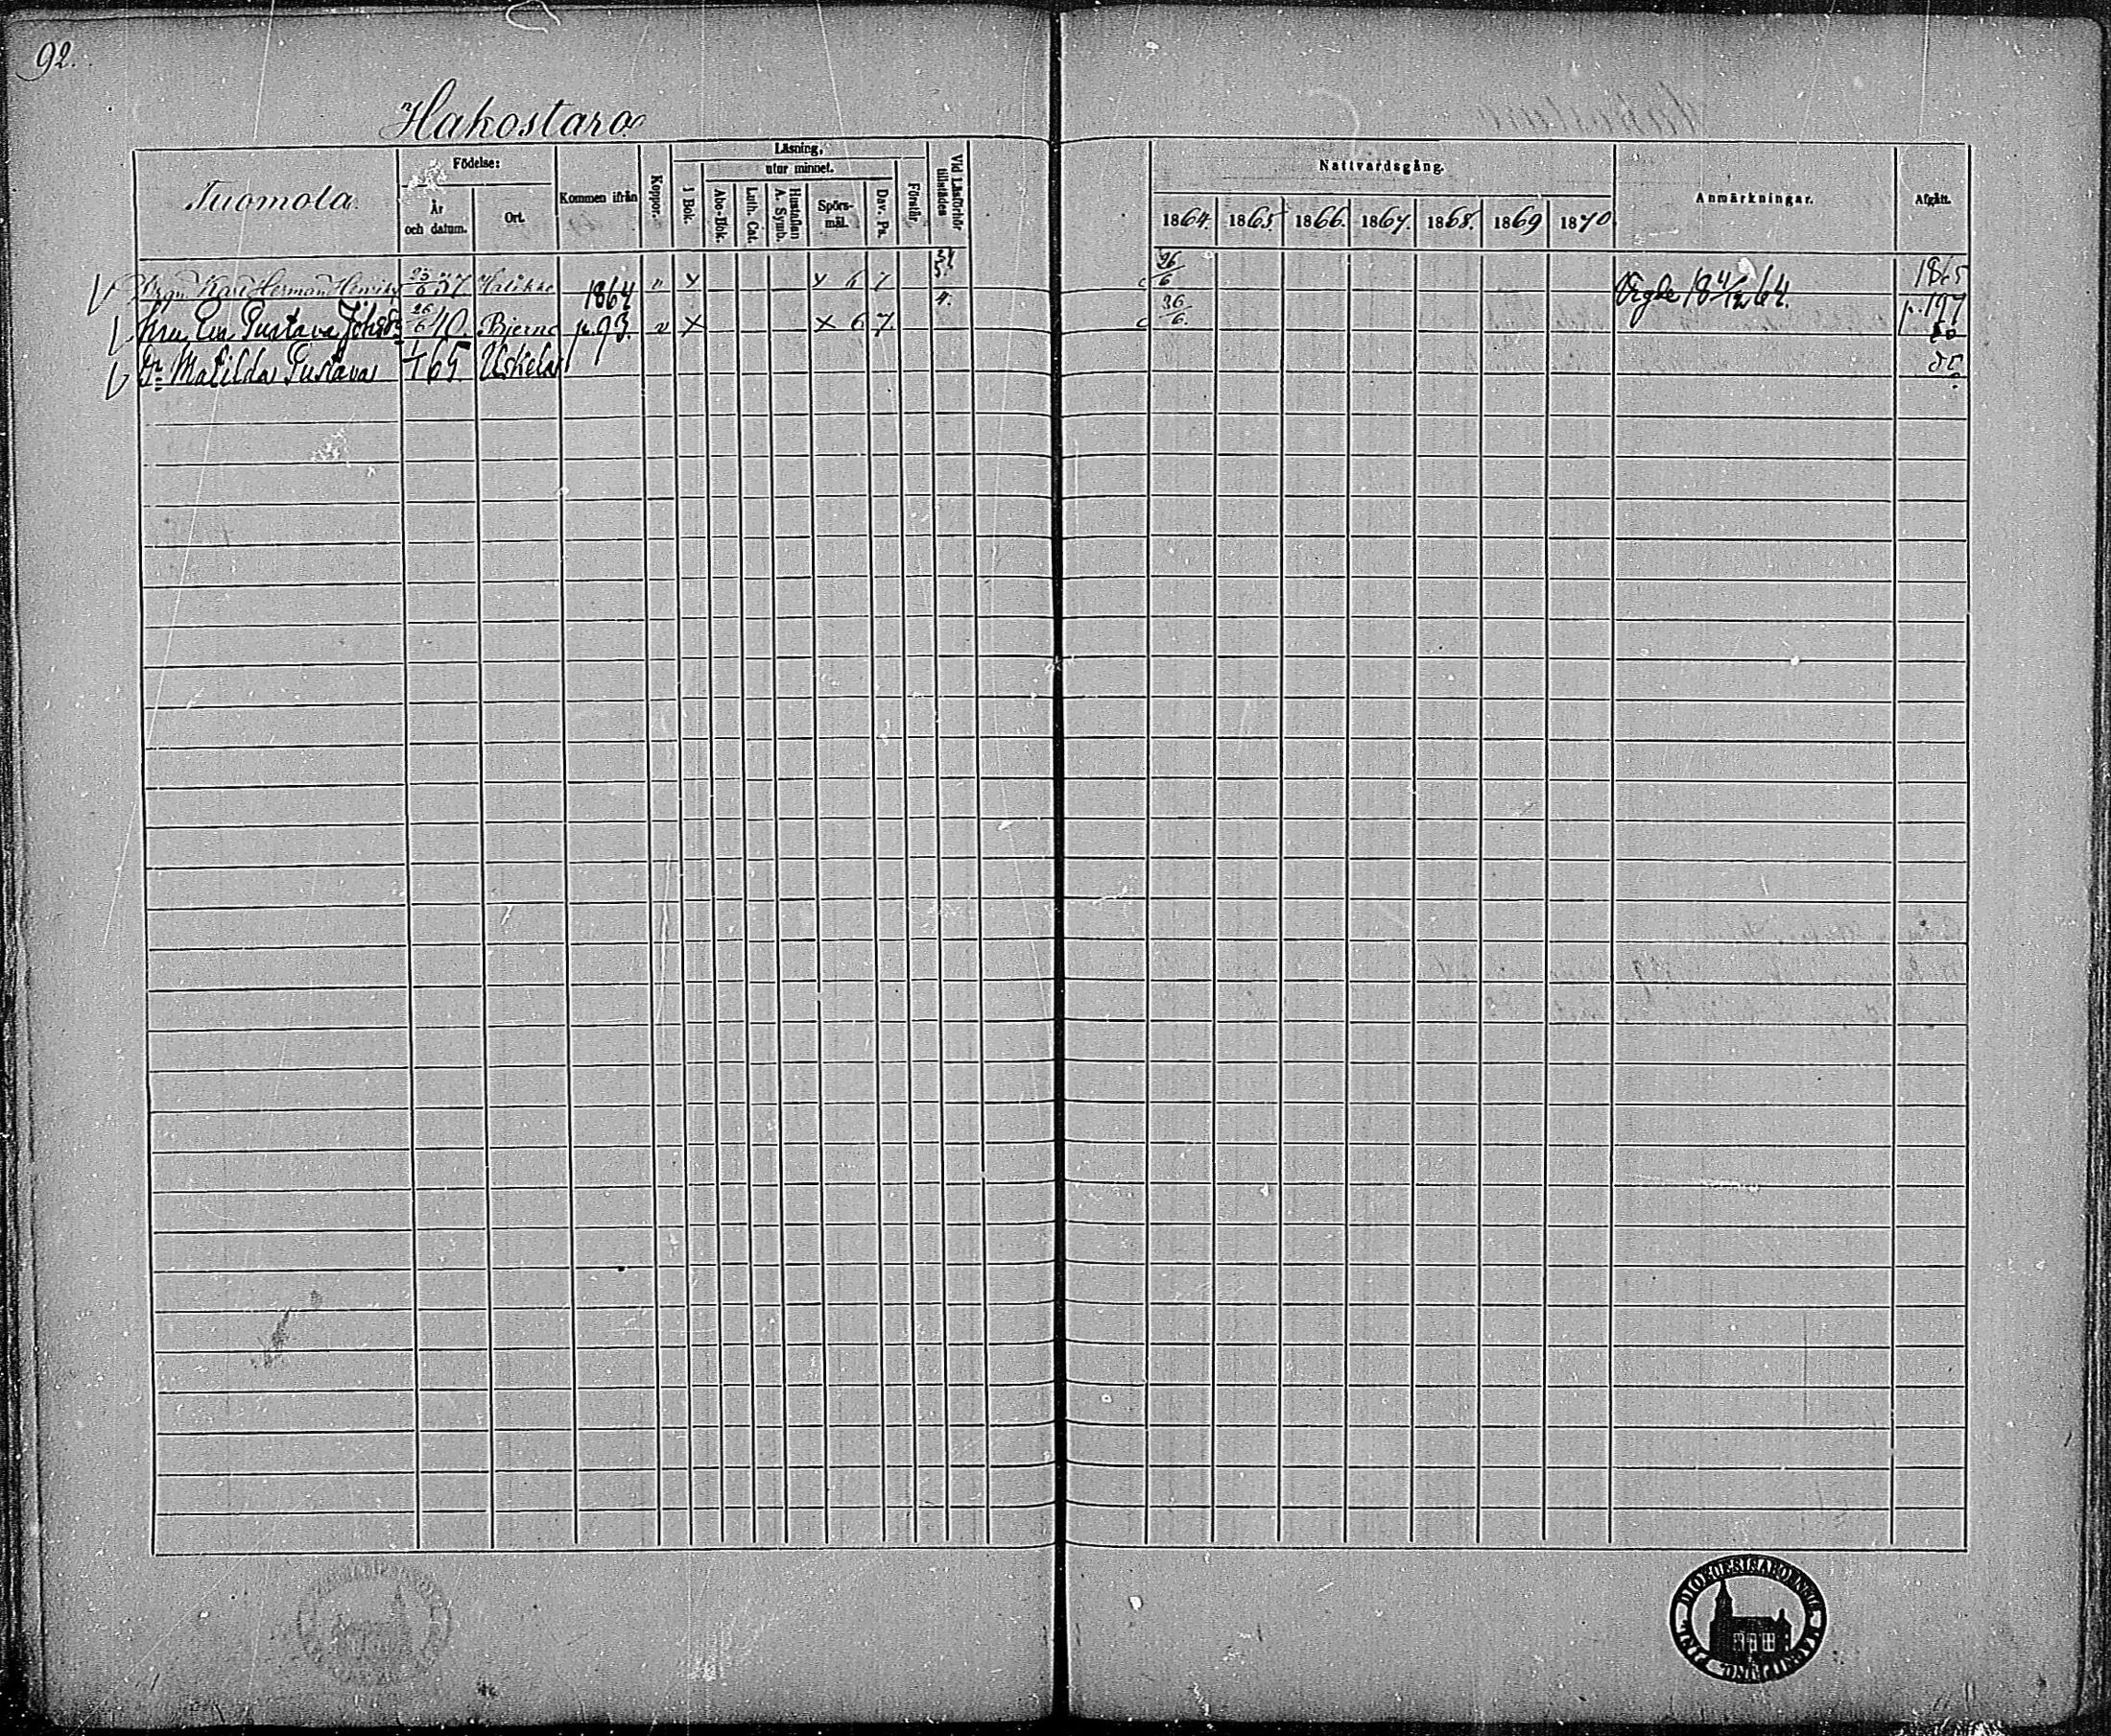 92.
Hakostaro
Tuomola.
Födelse:
År och datum.
Ort.
Kommen ifrån
Koppor.
Läsning,
i Bok.
utur minnet.
Abc-Bok.
Luth. Cat.
Hustaflan A. Symb.
Spörsmål.
Dav. Ps.
Förstår.
Vid Läsförhör tillstädes
Nattvardsgång.
1864. 1865. 1866. 1867. 1868. 1869 1870
Anmärkningar.
Afgått.
Karl Herman Henriks 37 Halikko 1864 " x x 6 7 26/6 Vigde 64. 1865
Eva Gustava Johsdr 26/6 40 Bjerno p. 93. " x x 6 7. 4. 26/6. p. 197
Dr Matilda Gustava 65 Uskela do
DIOECESIS ABOENSIS MAGNI PRINC. FINL.